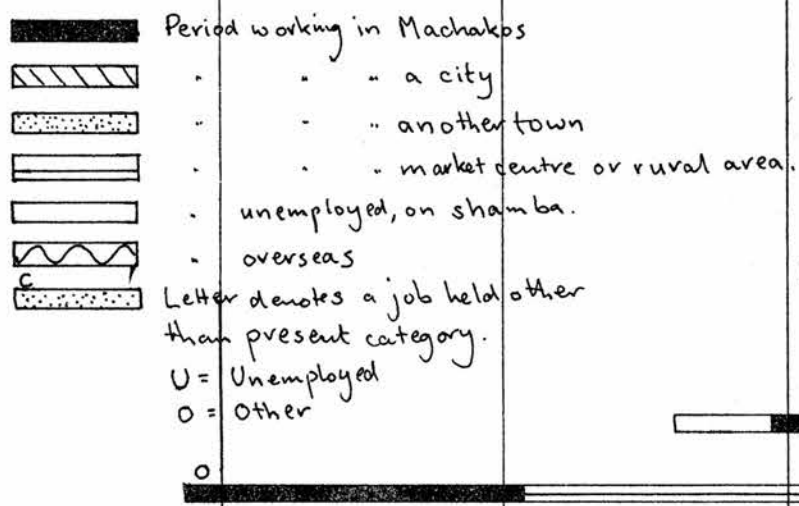 Period working in Machakos
" " " a city
" " " another town
" " " market centre or rural area.
" unemployed, on shamba.
" overseas
C
Letter denotes a job held other
than present category.
U = Unemployed
O = Other
O